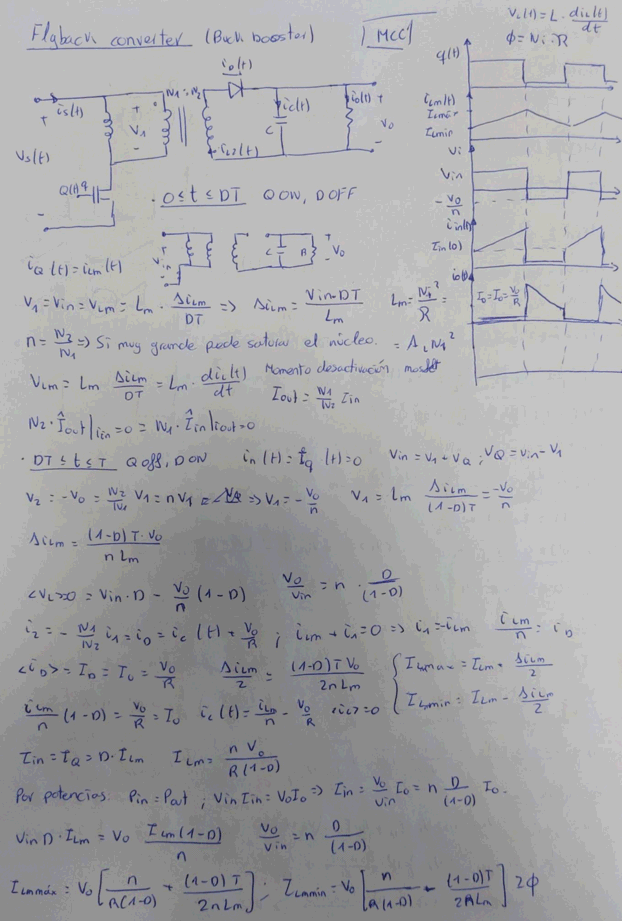 Flyback converter (Buck booster) MCC
V_L(t) = L · di_L(t)/dt
φ = Ni : R
q(t)
i_D(t)
N1 : N2
i_S(t)
+ V_1 -
i_C(t)
C
i_o(t) +
V_o
V_S(t)
i_L2(t)
Q(t) q
i_Lm(t)
I_Lmáx
I_Lmin
V_i
V_in
-V_o/n
i_in(t)
I_in(0)
i_D(t)
I_D = I_o = V_o/R
· 0 ≤ t ≤ DT Q ON, D OFF
V_in C R V_o
i_Q(t) = i_Lm(t)
V_1 = V_in = V_Lm = L_m · Δi_Lm/DT => Δi_Lm = V_in · DT/L_m L_m = N_1²/R =
n = N_2/N_1 => Si muy grande puede saturar el núcleo. = A_L N_1²
V_Lm = L_m Δi_Lm/DT = L_m · di_L(t)/dt Momento desactivación mosfet
I_out = N_1/N_2 I_in
N_2 · Î_out|i_in=0 = N_1 · Î_in|i_out=0
· DT ≤ t ≤ T Q off, D ON i_in(t) = i_q(t) = 0 V_in = V_1 + V_Q ; V_Q = V_in - V_1
V_2 = -V_o = N_2/N_1 V_1 = n V_1 => V_1 = -V_o/n V_1 = L_m Δi_Lm/(1-D)T = -V_o/n
Δi_Lm = (1-D) T · V_o/n L_m
<V_L> = 0 = V_in · D - V_o/n (1-D) V_o/V_in = n · D/(1-D)
i_2 = - N_1/N_2 i_1 = i_D = i_C(t) + V_o/R ; i_Lm + i_1 = 0 => i_1 = -i_Lm i_Lm/n = i_D
<i_D> = I_D = I_o = V_o/R Δi_Lm/2 = (1-D) T V_o/2 n L_m { I_Lmax = I_Lm + Δi_Lm/2
i_Lm/n (1-D) = V_o/R = I_o i_C(t) = i_LD/n - V_o/R <i_C> = 0 I_Lmin = I_Lm - Δi_Lm/2
I_in = I_Q = D · I_Lm I_Lm = n V_o/R(1-D)
Por potencias. P_in = P_out ; V_in I_in = V_o I_o => I_in = V_o/V_in I_o = n D/(1-D) I_o.
V_in D · I_Lm = V_o I_Lm(1-D)/n V_o/V_in = n D/(1-D)
I_Lmmáx = V_o [n/R(1-D) + (1-D) T/2 n L_m] ; I_Lmmin = V_o [n/R(1-D) - (1-D) T/2 R L_m] ≥ φ